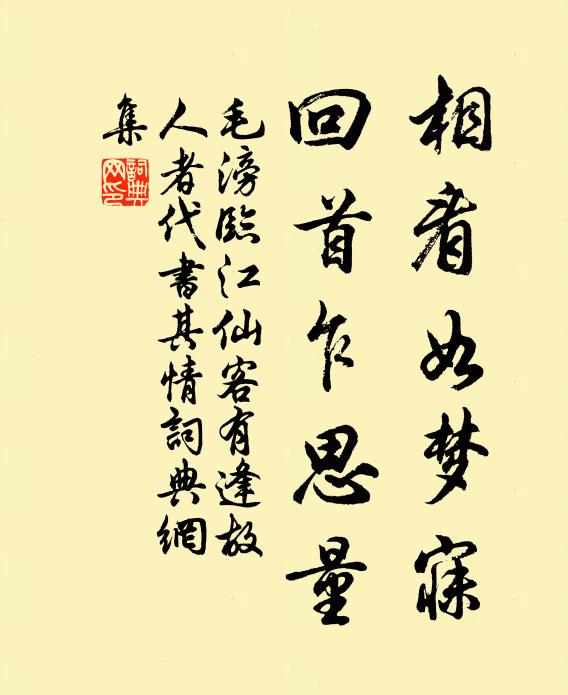 相看如梦寐
回首乍思量
毛滂臨江仙客有逢故
人者代書其情詞典網
集
詞典網印